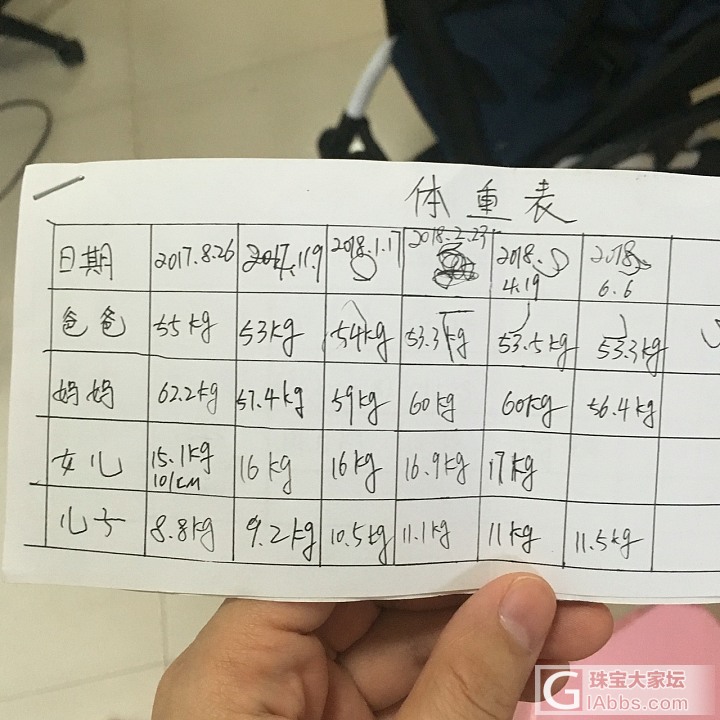 体重表
日期 2017.8.26 2017.11.9 2018.1.17 2018.2.23 2018. 4.19 2018. 6.6
爸爸 55kg 53kg 54kg 53.3kg 53.5kg 53.3kg
妈妈 62.2kg 57.4kg 59kg 60kg 60kg 56.4kg
女儿 15.1kg 101cm 16kg 16kg 16.9kg 17kg
儿子 8.8kg 9.2kg 10.5kg 11.1kg 11kg 11.5kg
珠宝大家坛
lAbbs.com